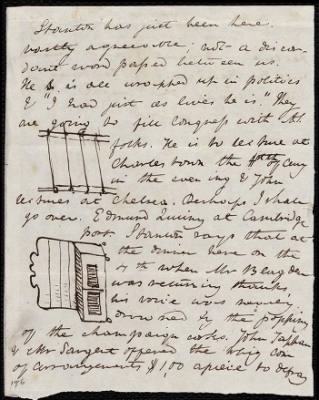 Stanton has just been here.
vastly agreeable; not a discor-
dant word passed between us.
He is all wrapped up in politics
& "I had just as lives he is." They
are going to fill Congress with A.
folks. He is to lecture at
Charlestown the of Aug
in the evening & John
lectures at Chelsea. Perhaps I shall
go over. Edmund Quincy at Cambridge
port. Stanton says that at
the dinner here on the
4th when Mr Blagden
was returning thanks
his voice was nearly
drowned by the popping
of the champaign corks. John Tappan
& Mr Sargent offered the whig com
of arrangements $1,00 apiece to defray